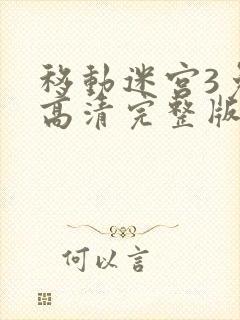 移動迷宮3
高清完整版
何以言